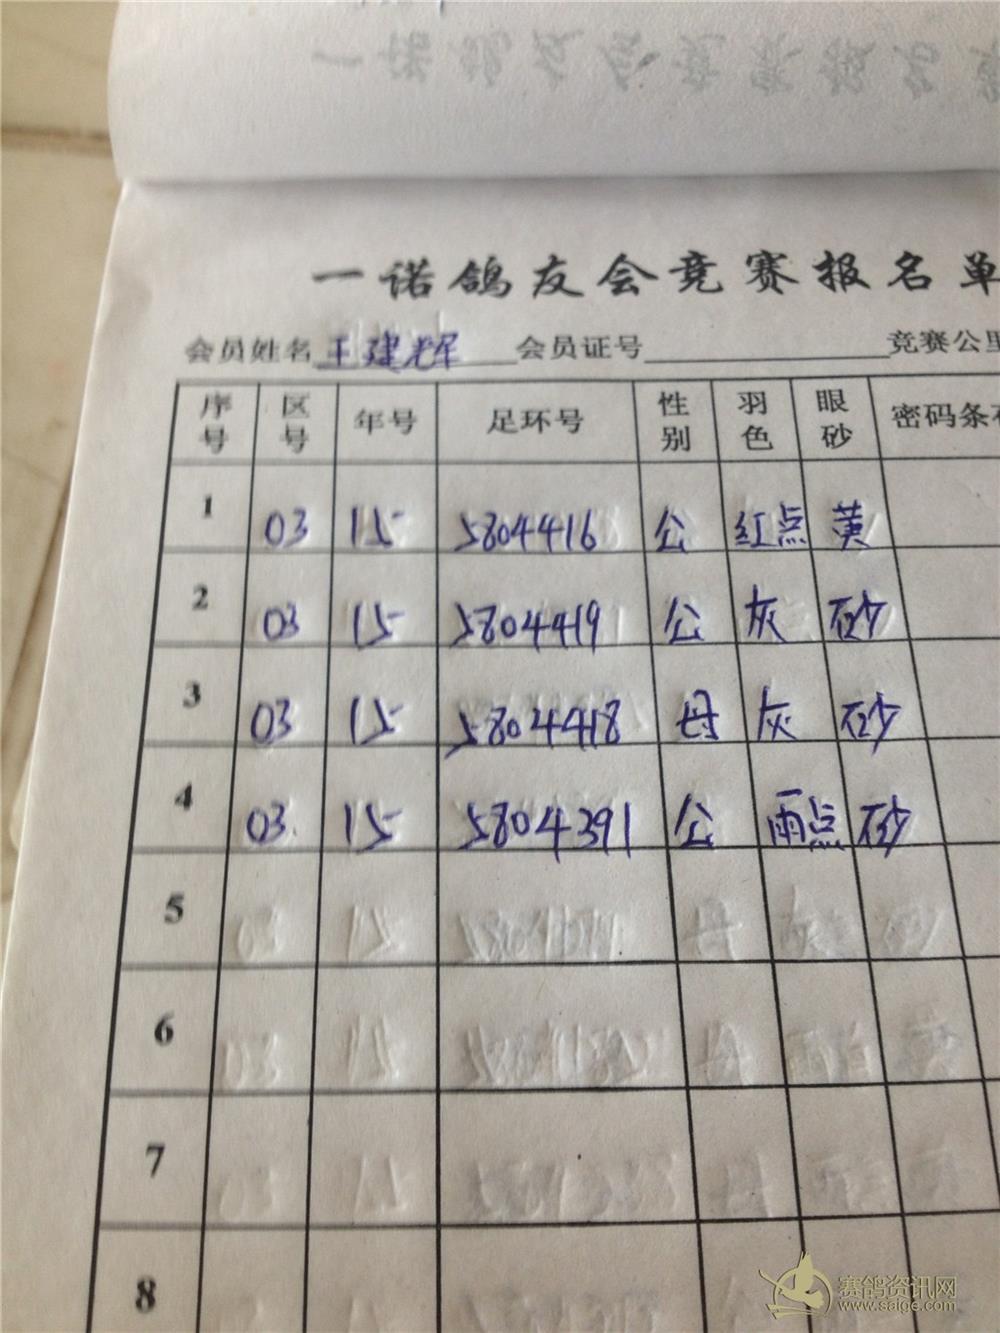 一诺鸽友会竞赛报名单
会员姓名 王建辉 会员证号 竞赛公里
序号 区号 年号 足环号 性别 羽色 眼砂 密码条
1 03 15 5804416 公 红点 黄
2 03 15 5804419 公 灰 砂
3 03 15 5804418 母 灰 砂
4 03 15 5804391 公 雨点 砂
5
6
7
8
赛鸽资讯网
www.saige.com